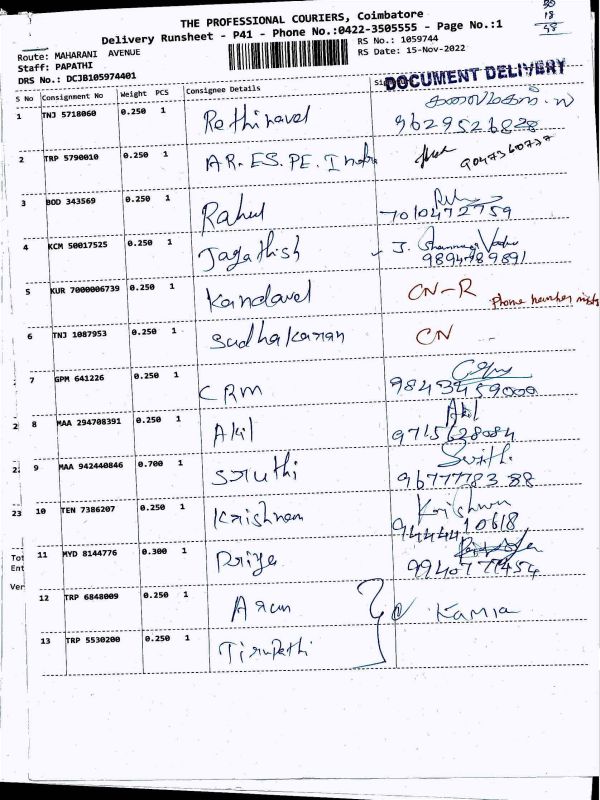 50
18
68
THE PROFESSIONAL COURIERS, Coimbatore
Delivery Runsheet - P41 - Phone No.:0422-3505555 - Page No.:1
Route: MAHARANI AVENUE
RS No.: 1059744
Staff: PAPATHI
RS Date: 15-Nov-2022
DRS No.: DCJB105974401
DOCUMENT DELIVERY
S No Consignment No Weight PCS Consignee Details
1 TNJ 5718060 0.250 1 Rethinavel 9629526828
2 TRP 5790010 0.250 1 AR. ES. PE. Indra 9047360737
3 BOD 343569 0.250 1 Rahul 7010472759
4 KCM 50017525 0.250 1 Jagathish J. Shanmuga Vadivu 9894989891
5 KUR 7000006739 0.250 1 Kandavel CN-R Phone number
6 TNJ 1087953 0.250 1 Sudhakaran CN
7 GPM 641226 0.250 1 CRM 9843459000
2 8 MAA 294708391 0.250 1 Akil Akil 9715628084
2 9 MAA 942440846 0.700 1 Sruthi Sruthi 9677778388
23 10 TEN 7386207 0.250 1 Krishnan Krishnan 9444410618
Tot
Ent
11 MYD 8144776 0.300 1 Priya 9940777454
Ver
12 TRP 6848009 0.250 1 Arun
Kamia
13 TRP 5530200 0.250 1 Tirupathi